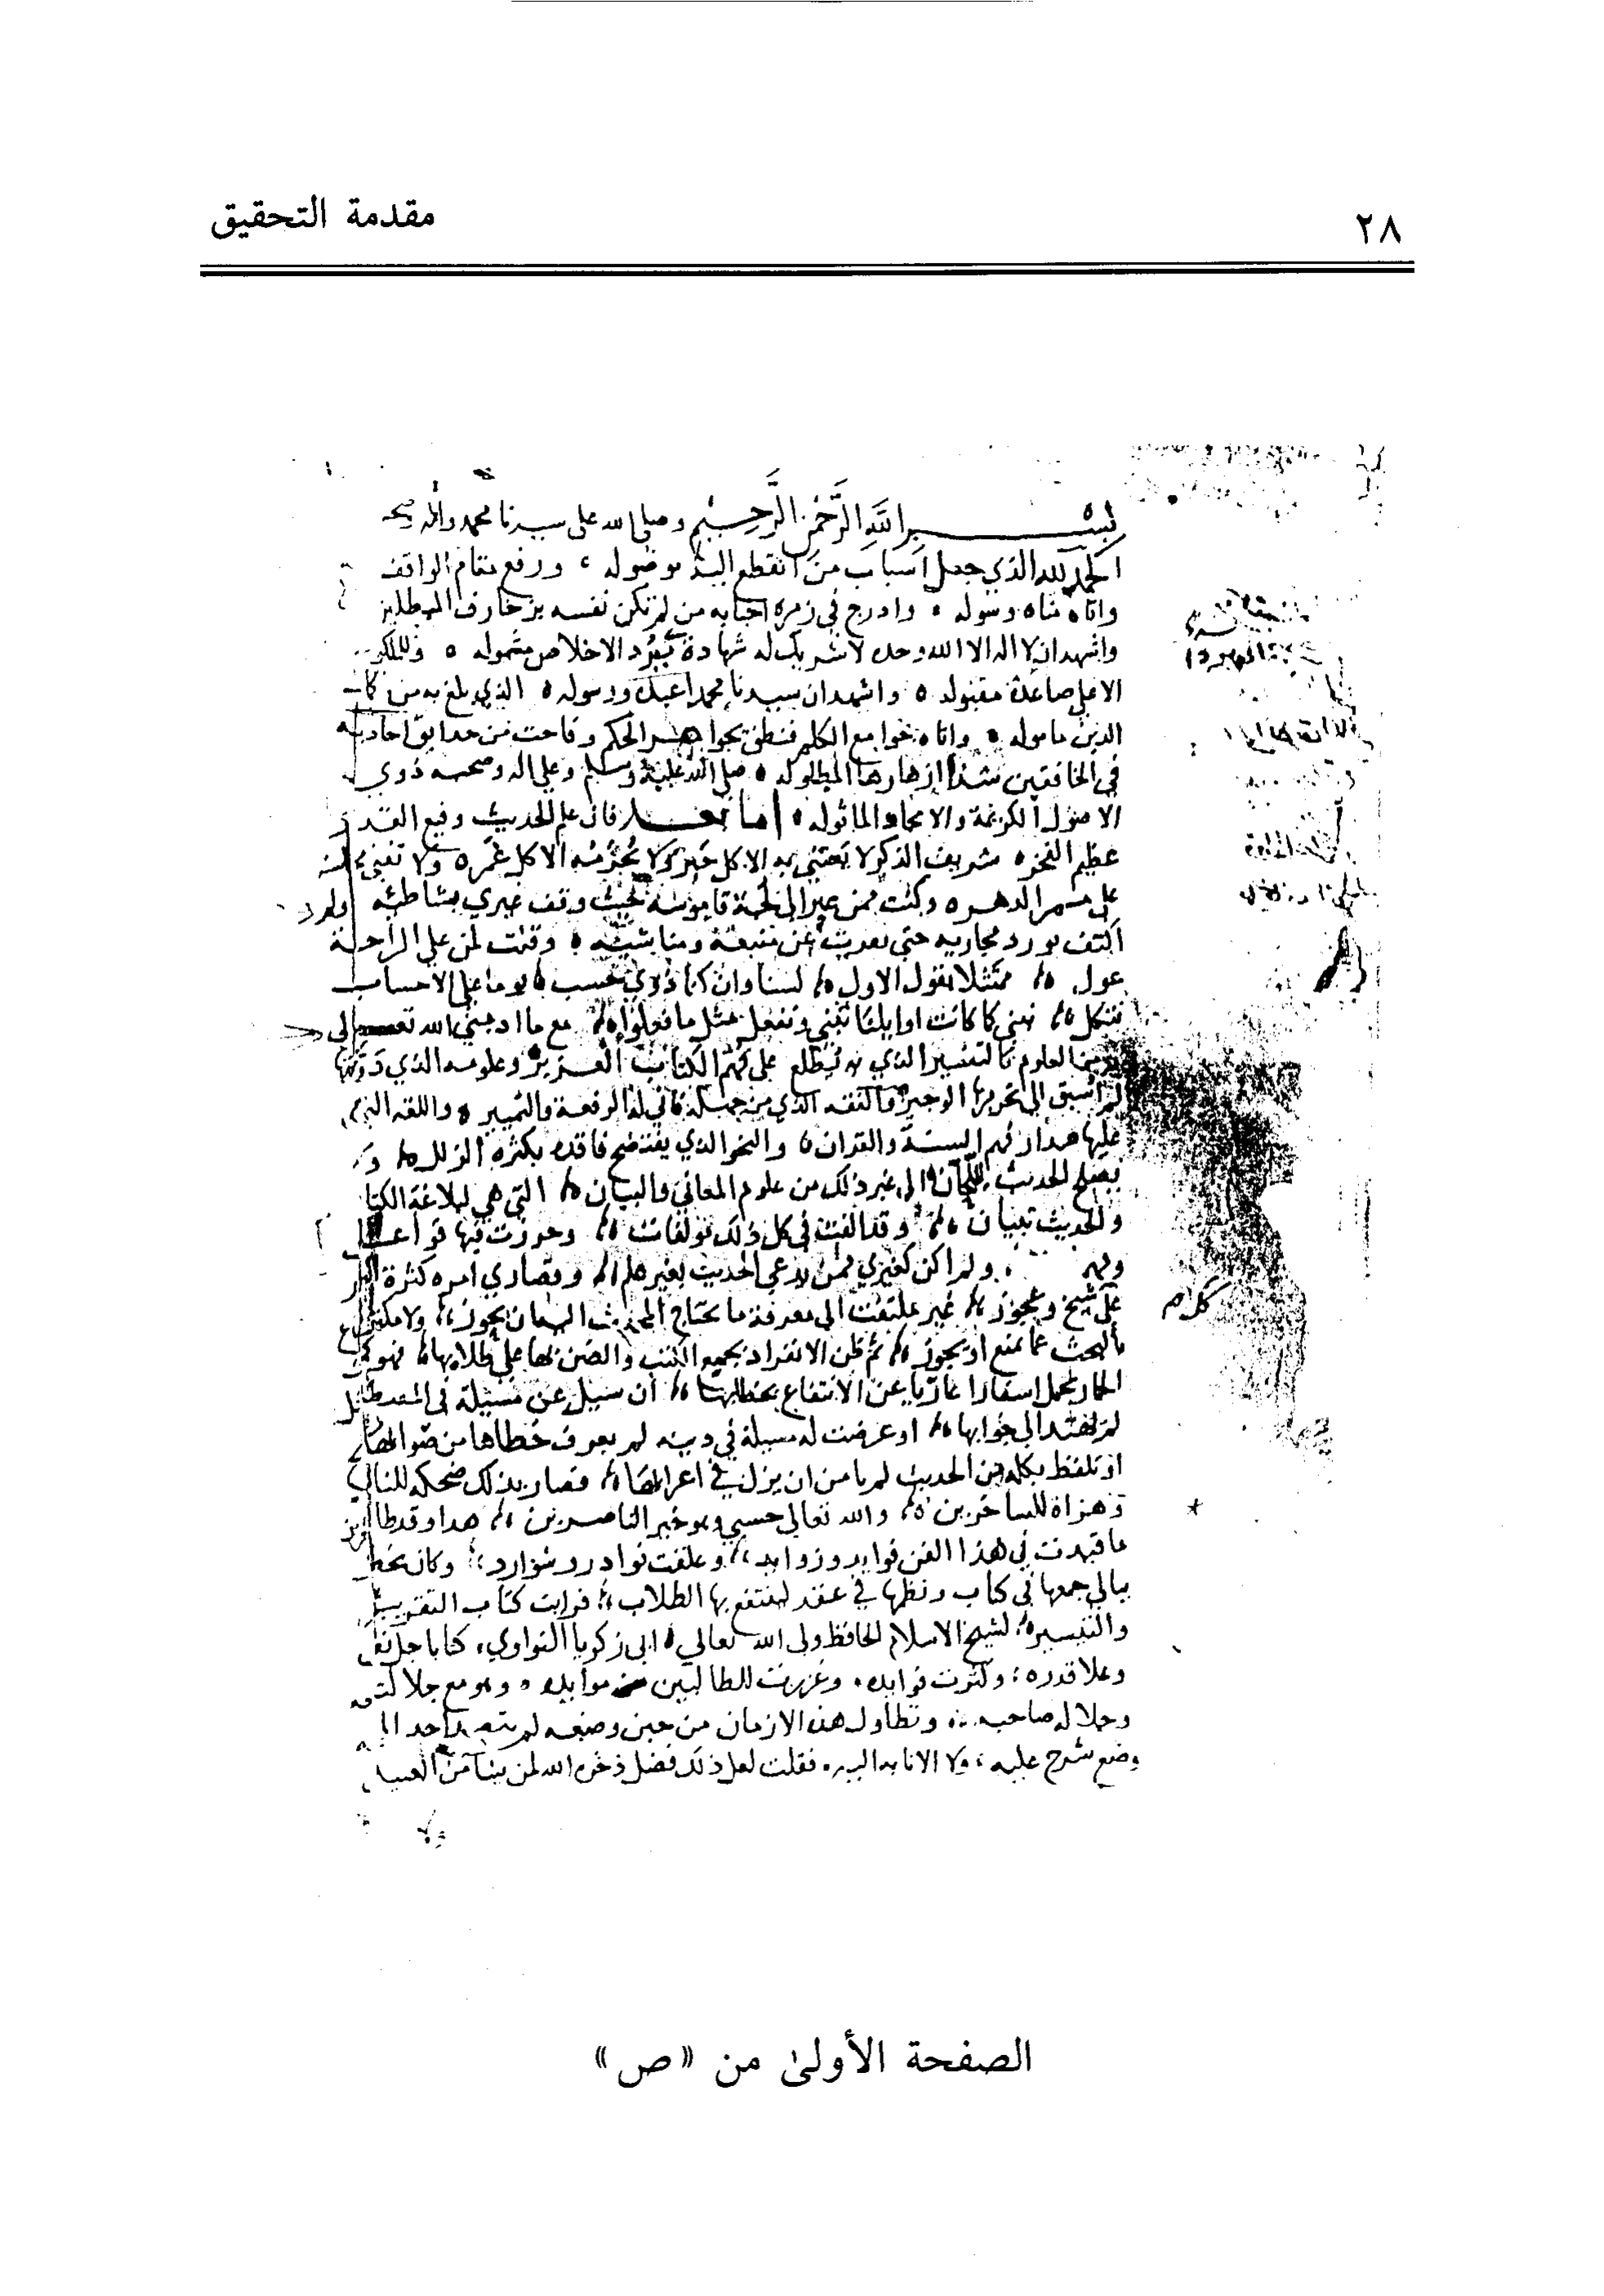 ٢٨
مقدمة التحقيق
بسم اللَّهِ الرَّحْمَنِ الرَّحِيْمِ وصلى الله على سيدنا محمد واله وصحـ
الحمد لله الذي جعل اسباب من انقطع اليه موصوله ، ورفع مقام الواقف
واتاه مناه وسوله ٥ وادرج في زمرة احبابه من لم تكن نفسه بزخارف المبطلين
واشهد ان لا اله الا الله وحده لا شريك له شهادة ببُرد الاخلاص مشموله ٥ وللملكو
الاعلى صاعدة مقبوله ٥ واشهد ان سيدنا محمدا عبده ورسوله ٥ الذي بلغ به من كان
الدين ماموله ٥ واتاه جوامع الكلم فنطق بجواهر الحكم وفاحت من حدايق احاديثه
في الخافقين شذا ازهارها المطلوله ٥ صلى الله عليه وسلم وعلى اله وصحبه ذوي
الاصول الكريمة والامجاد الماثوله ٥ اما بعد فان علم الحديث رفيع القدر
عظيم الفخر ٥ شريف الذكر لا يعتني به الا كل حبر ولا يُحرَمُه الا كل غمر ٥ ولا تفنى محاسنه
على ممر الدهر ٥ وكنت ممن عبر الى لجة قاموسه حيث وقف غيري بشاطئه ولم
اكتف بورود مجاريه حتى بقرت عن منبعه ومناشيه ٥ وقلت لمن على الراحة
عول ٥ متمثلا بقول الاول ٥ لسنا وان كنا ذوي حسب ٥ يوما على الاحساب
نتكل ٥ نبني كما كانت اوايلنا تبني ونفعل مثل ما فعلوا ٥ مع ما امدني الله تعالى
به من العلوم كالتفسير الذي به يُطلع على فهم الكتاب العزيز ٥ وعلومه الذي دونتها
لم اسبق الى تحريرها الوجيز ٥ والفقه الذي من جهله فاني له الرفعة والتمييز ٥ واللغه التي
عليها مدار فهم السنة والقران ٥ والنحو الذي يفتضح فاقده بكثرة الزلل ٥ و
يصلح الحديث للحّان ٥ الى غير ذلك من علوم المعاني والبيان ٥ التي هي لبلاغة الكتا
والحديث تبيان ٥ وقد الفت في كل ذلك مولفات ٥ وحررت فيها قواعد
ومهـ ولم اكن كغيري ممن يدعي الحديث بغير علم ٥ وقصاري امره كثرة السماع
على شيخ وعجوز ٥ غير ملتفت الى معرفة ما يحتاج المحدث اليه ان يجوز ٥ ولا مكترث
بالبحث عما يمتنع او يجوز ٥ ثم ظن الانفراد بجمع الكتب والضن بها على طلابها ٥ فهو كمثل
الحمار يحمل اسفارا عاريا عن الانتفاع بخطابها ٥ ان سيل عن مسيلة في المصطلح
لم يهتد الى جوابها ٥ او عرضت له مسيلة في دينه لم يعرف خطاها من صوابها
او تلفظ بكلمة من الحديث لم يامن ان يزل في اعرابها ٥ فصار بذلك ضحكة للناظرين
وهزاة للساخرين ٥ والله تعالى حسبي وهو خير الناصرين ٥ هذا وقد طال
ما قيدت في هذا الفن فوايد وزوايد ٥ وعلقت نوادر وشوارد ٥ وكان يخطر
ببالي جمعها في كتاب ونظمها في عقد لينتفع بها الطلاب ٥ فرايت كتاب التقريب
والتيسير ٥ لشيخ الاسلام الحافظ ولي الله تعالى ٥ ابي زكريا النواوي ، كتابا جل نفعه
وعلا قدره ، وكثرت فوايده ٥ وغزرت للطالبين موايده ٥ وهو مع جلالته
وجلالة صاحبه ٥ وتطاول هذه الازمان من حين وضعه لم يتصد احد الى
وضع شرح عليه ، ولا الانابه اليه ٥ فقلت لعل ذلك فضل ذخره الله لمن يشا من العبيد
كلام
الصفحة الأولىٰ من «ص»